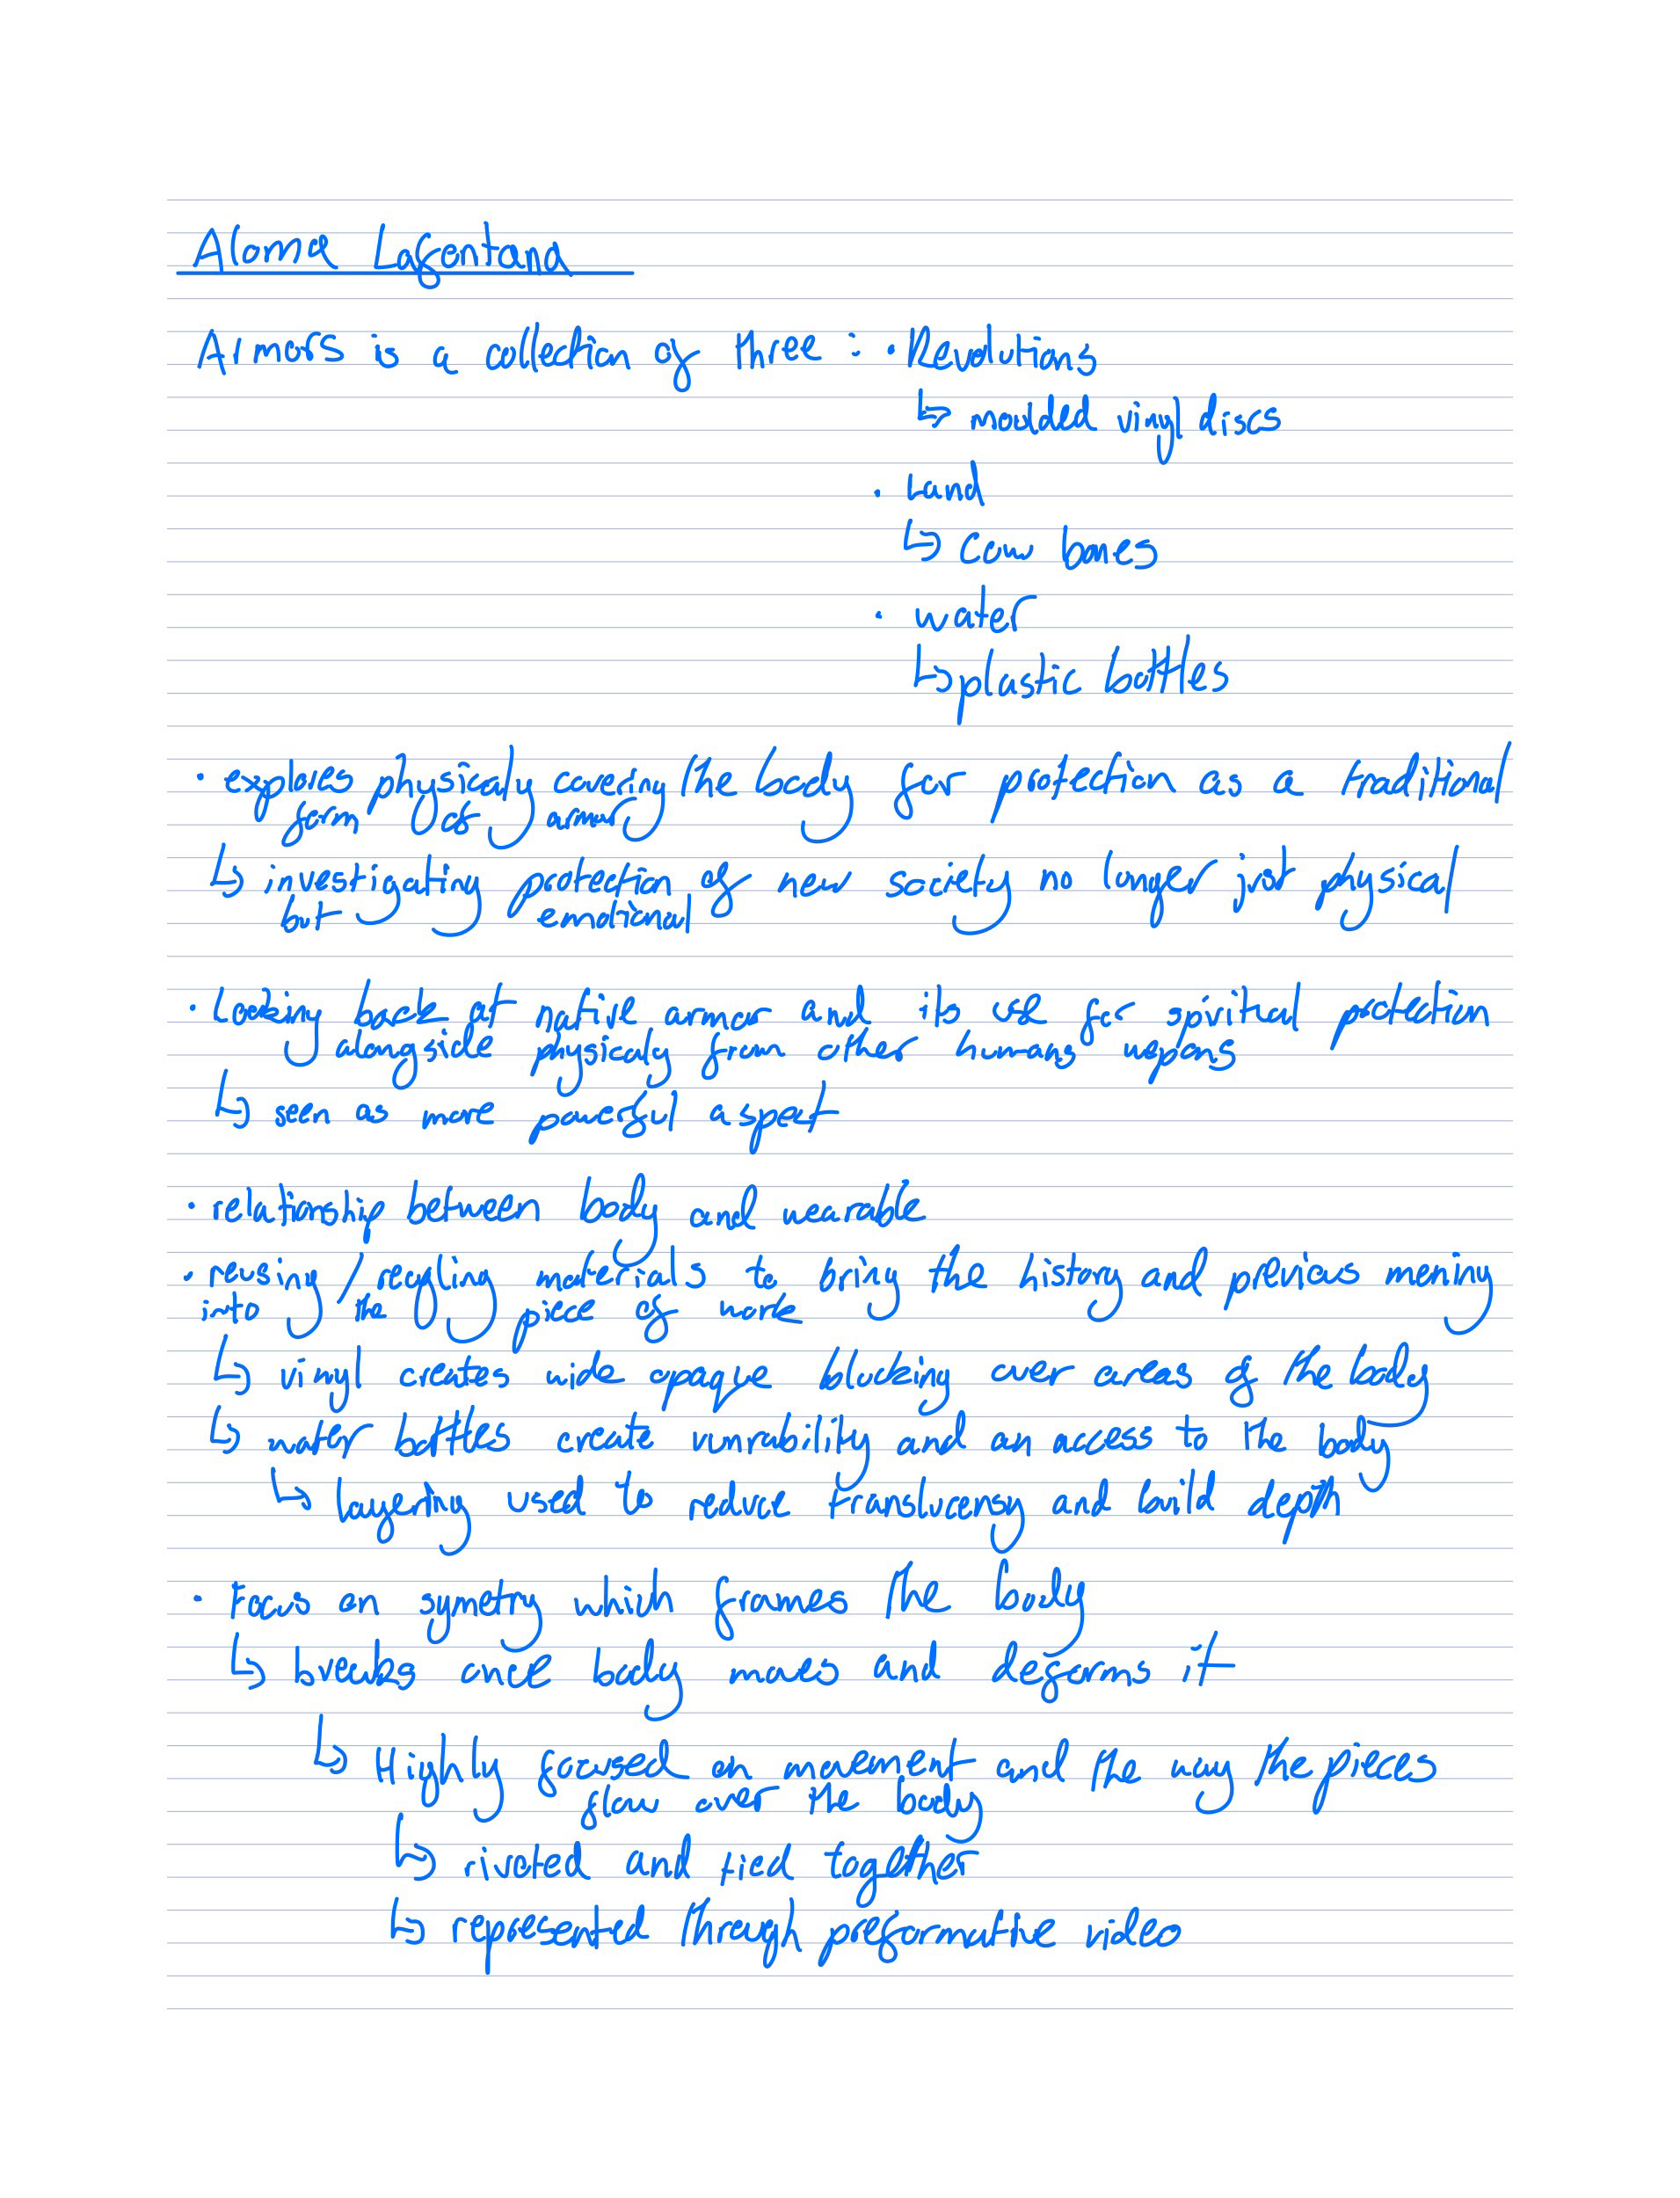 Aloma Lafontana
Armors is a collection of three : • Revolutions
↳ moulded vinyl discs
• Land
↳ Cow bones
• water
↳ plastic bottles
• explores physicaly covering the body for protection as a traditional
form of armor
↳ investigating protection of new society no longer just physical
but emotional
• Looking back at native armor and its use for spiritual protection
alongside physicaly from other humans wepons
↳ seen as more powerful aspect
• relationship between body and wearable
• reusing / recycling materials to bring the history and previous mening
into the piece of work
↳ vinyl creates wide opaque blocking over areas of the body
↳ water bottles create vunrability and an access to the body
↳ layering used to reduce translucensy and build depth
• Focus on symetry which frames the body
↳ breaks once body moves and deforms it
↳ Highly focused on movement and the way the pieces
flow over the body
↳ riveted and tied together
↳ represented through preformative video